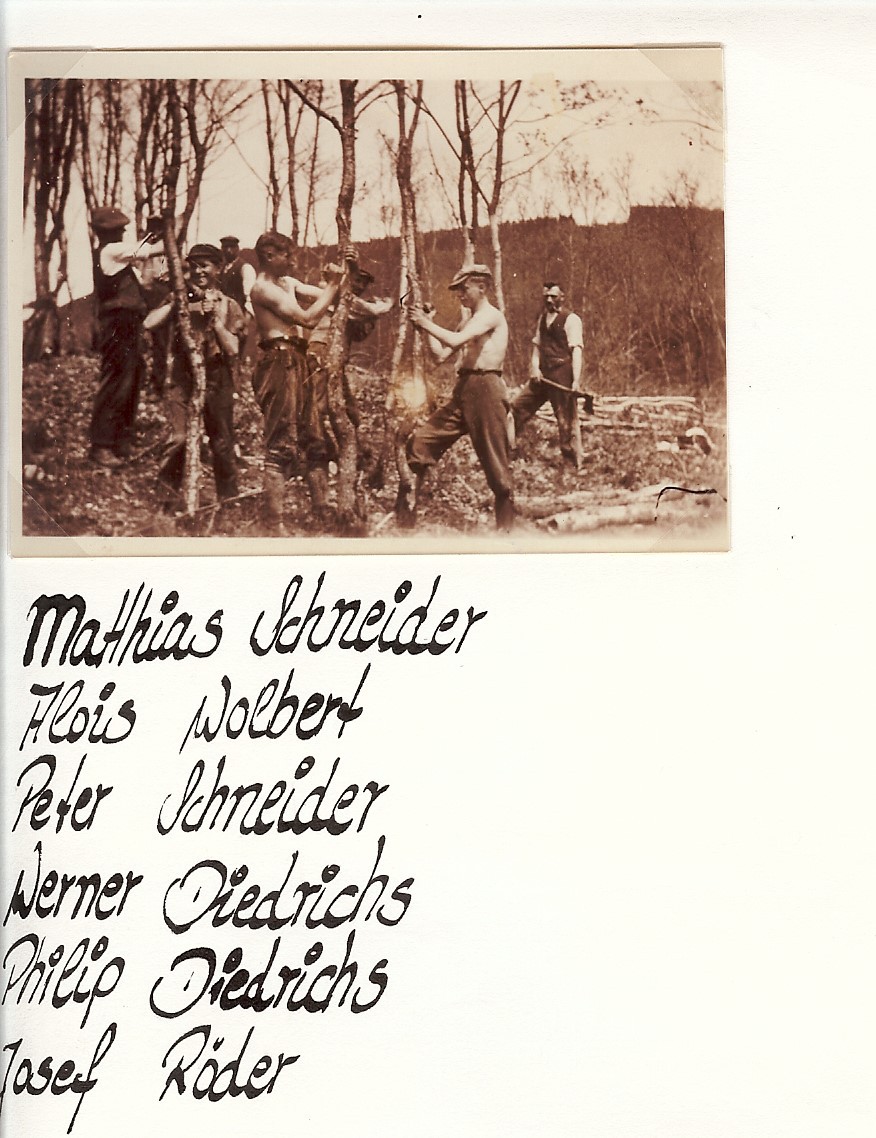 Matthias Schneider
Alois Wolbert
Peter Schneider
Werner Diedrichs
Philip Diedrichs
Josef Röder